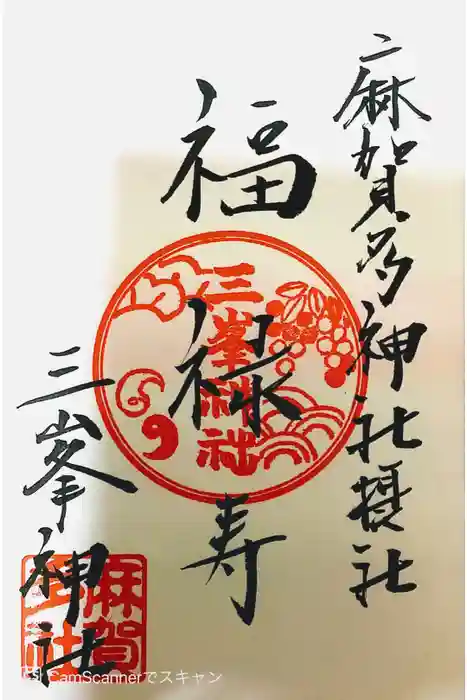 麻賀多神社摂社
福禄寿
三峯神社
三峯神社
麻賀
CamScannerでスキャン